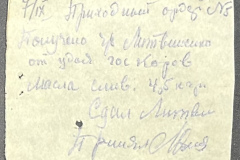 7/IX Приходный ордер №8
Получено г/к Литвиненко
от удоя гос коров
масла слив. 4,5 кгр.
Сдал
Принял